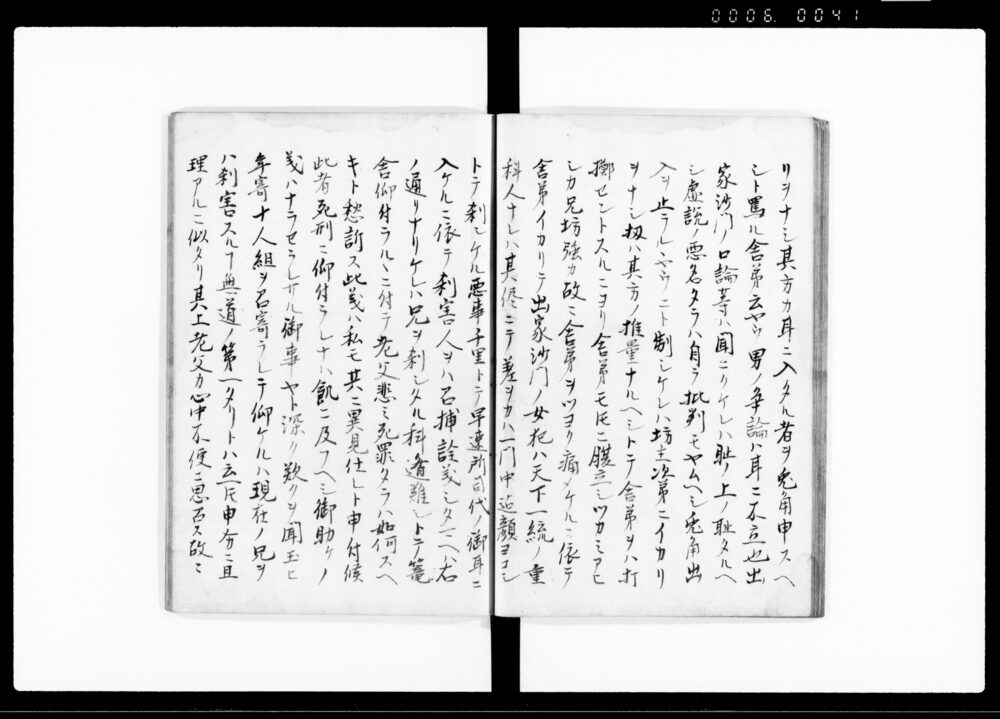 0006.0041
リヲナシ其方カ耳ニ入タル者ヲ兎角申スヘ
シト罵ル舎弟云ヤウ男ノ争論ハ耳ニ不立也出
家沙門ノ口論等ハ聞ニクケレハ耻ノ上ノ耻タルヘ
シ虚説ノ悪名タラハ自ラ批判モヤムヘシ兎角出
入ヲ止ラルヘウニト制シケレハ坊主次第ニイカリ
ヲナシ扨ハ其方ノ推量ナルヘシトテ舎弟ヲハ打
擲セントスルニヨリ舎弟モ共ニ腹立シツカミアヒ
シカ兄坊強力故ニ舎弟ヲツヨク痛メケルニ依テ
舎弟イカリテ出家沙門ノ女犯ハ天下一統ノ重
科人ナレハ其侭ニテ差ヲカハ一門中迄顔ヨコシ
トテ刹シケル悪事千里トテ早速所司代ノ御耳ニ
入ケルニ依テ刹害人ヲハ召捕詮義シタマヘハ右
ノ通リナリケレハ兄ヲ刹シタル科遁難シトテ篭
舎仰付ラルヽニ付テ老父悲ミ死罪タラハ如何スヘ
キト愁訴ス此義ハ私モ其ニ異見仕レト申付候
此者死刑ニ仰付ラレナハ飢ニ及フヘシ御助ケノ
義ハナラセラレサル御事ヤト深ク歎クヲ聞玉ヒ
年寄十人組ヲ召寄ラレテ仰ケルハ現在ノ兄ヲ
ハ刹害スルフ無道ノ第一タリトハ云共申分ニ且
理アルニ似タリ其上老父カ心中不便ニ思召ス故ニ